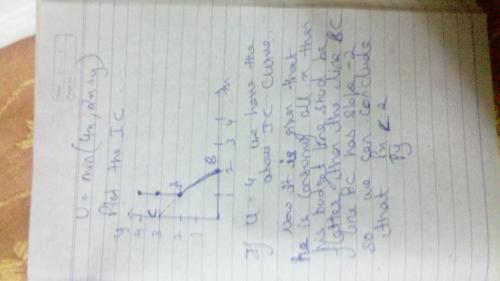 U = min(4x, 2x+y)
Plot the IC
y
4
3 C
2 A
1 B
1 2 3 4 x
If U = 4 we have the
above IC curve.
Now it is given that
he is consuming all x then
his budget line should be
flatter than the line BC
line BC has slope -2
so we can conclude
that Px/Py < 2